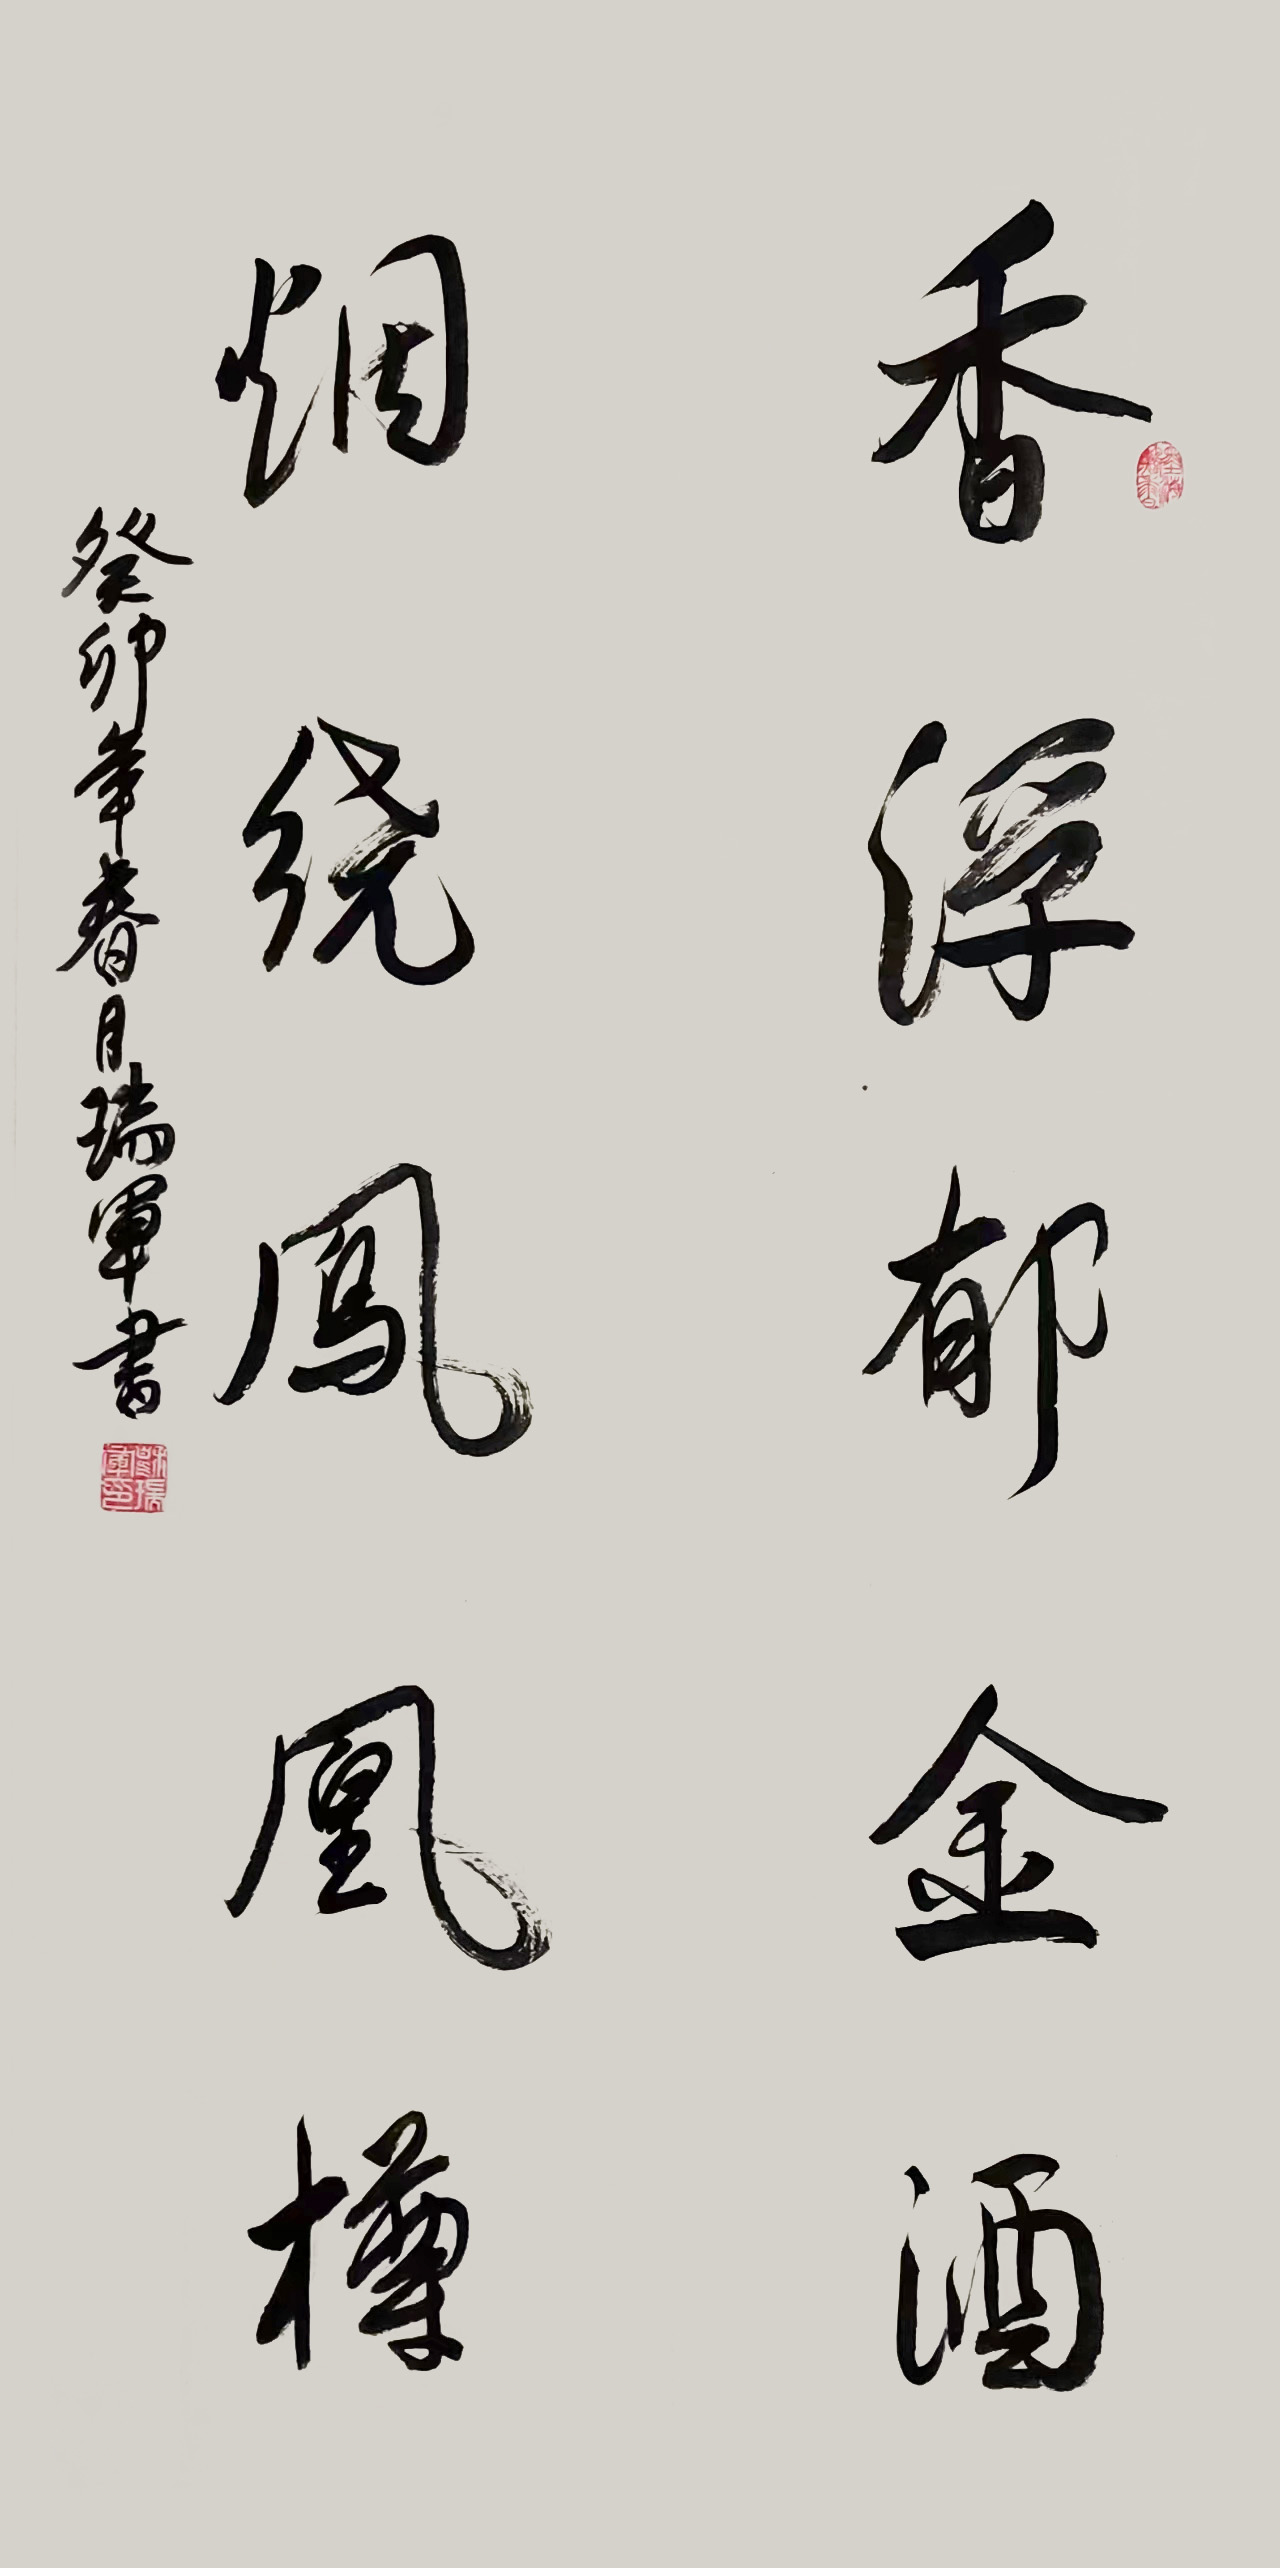 香浮郁金酒
烟绕凤凰樽
癸卯年春月瑞军书